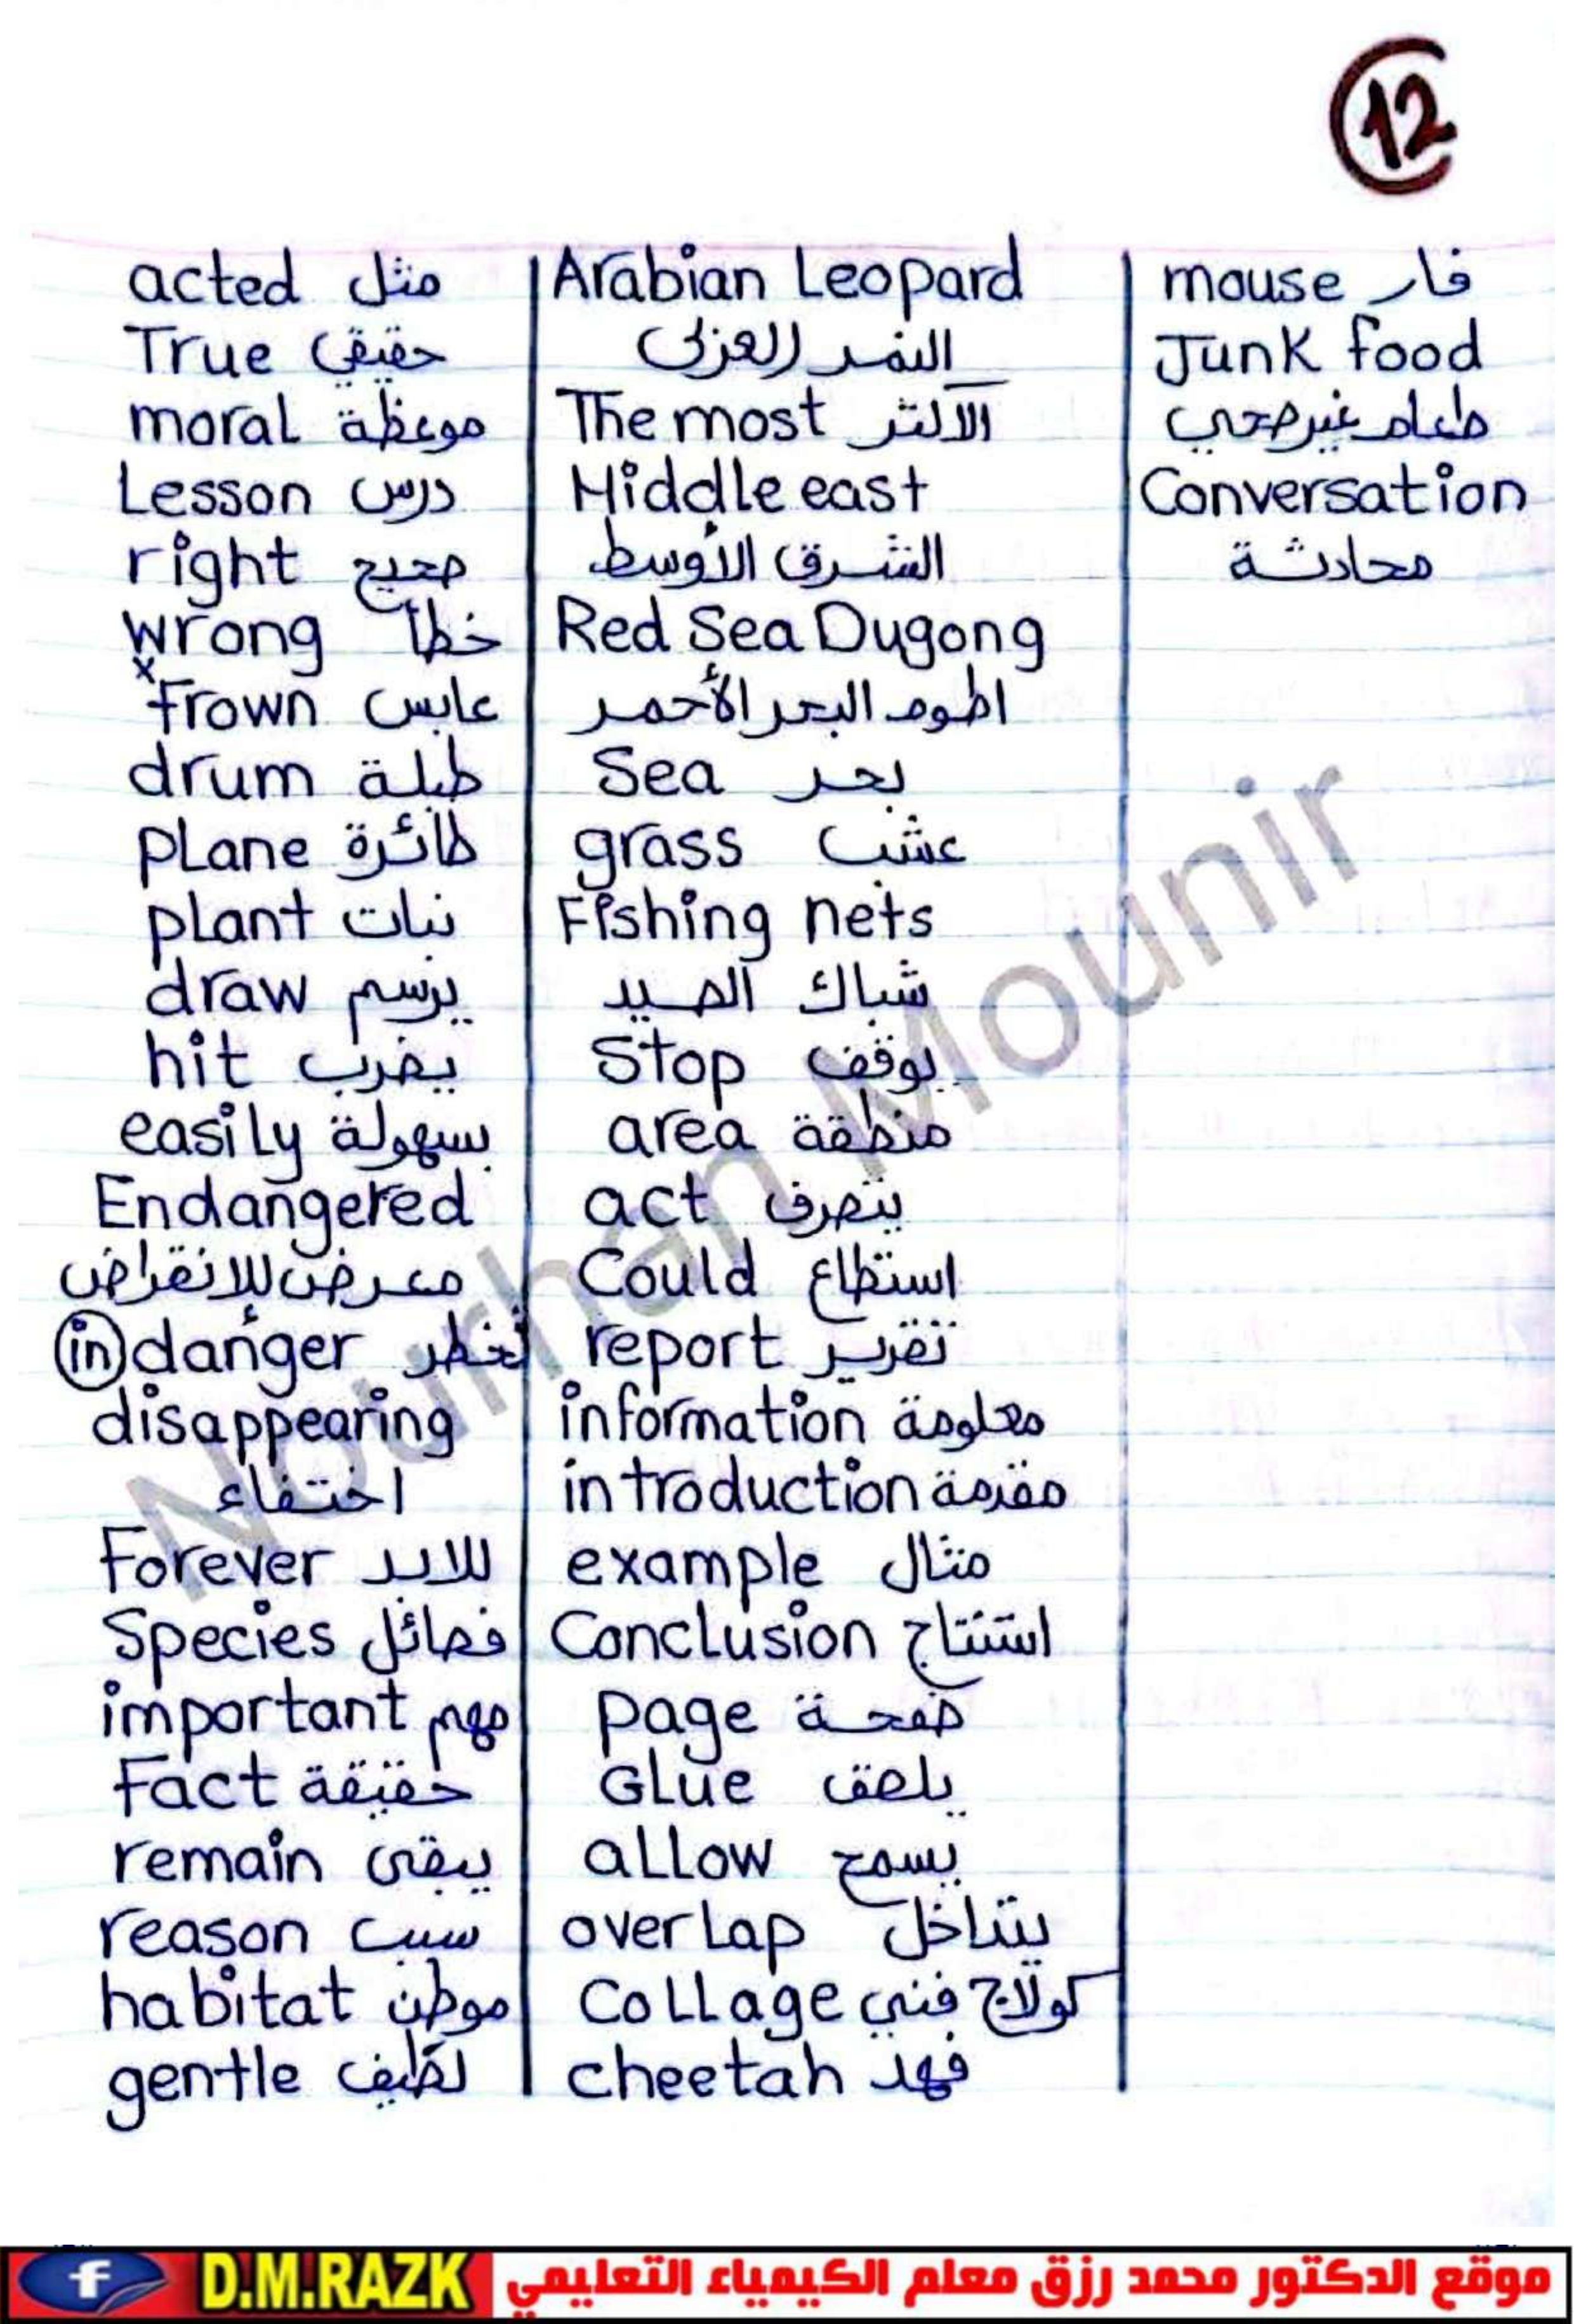 12
acted مثل
True حقيقي
moral موعظة
Lesson درس
right صحيح
wrong خطأ
x
frown عابس
drum طبلة
plane طائرة
plant نبات
draw يرسم
hit يضرب
easily بسهولة
Endangered
معرض للإنقراض
in danger لخطر
disappearing
اختفاء
Forever للابد
Species فصائل
important مهم
Fact حقيقة
remain يبقى
reason سبب
habitat موطن
gentle لطيف
Arabian Leopard
النمر العربى
The most الاكثر
Middle east
الشرق الأوسط
Red Sea Dugong
اطوم البحر الأحمر
Sea بحر
grass عشب
Fishing nets
شباك الصيد
Stop يوقف
area منطقة
act يتصرف
Could استطاع
report تقرير
information معلومة
introduction مقدمة
example مثال
Conclusion استنتاج
page صفحة
Glue يلصق
allow يسمح
overlap يتداخل
Collage كولاج فني
cheetah فهد
mouse فار
Junk food
طعام غير صحي
Conversation
محادثة
Nourhan Mounir
f D.M.RAZK موقع الدكتور محمد رزق معلم الكيمياء التعليمي